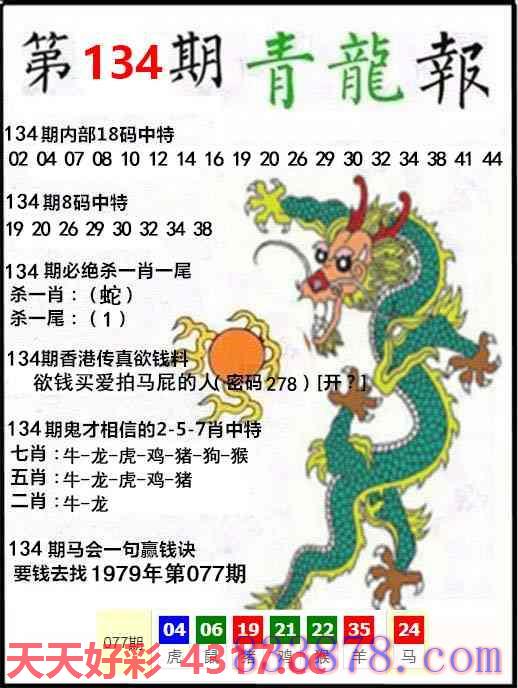 第134期 青龍報
134期内部18码中特
02 04 07 08 10 12 14 16 19 20 26 29 30 32 34 38 41 44
134期8码中特
19 20 26 29 30 32 34 38
134期必绝杀一肖一尾
杀一肖：（蛇）
杀一尾：（1）
134期香港传真欲钱料
欲钱买爱拍马屁的人（密码278）[开？]
134期鬼才相信的2-5-7肖中特
七肖：牛-龙-虎-鸡-猪-狗-猴
五肖：牛-龙-虎-鸡-猪
二肖：牛-龙
134期马会一句赢钱诀
要钱去找1979年第077期
077期 04 06 19 21 22 35 24
虎 鼠 猪 鸡 猴 羊 马
天天好彩 4317.cc